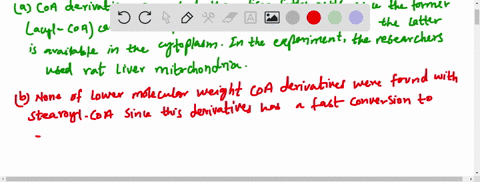 (a) CoA deriva
the former
(auyl-CoA) ca
the latter
is available in the cytoplasm. In the experiment, the researchers
used rat liver mitochondria.
(b) None of lower molecular weight CoA derivatives were found with
stearoyl-CoA since this derivatives has a fast conversion to
-